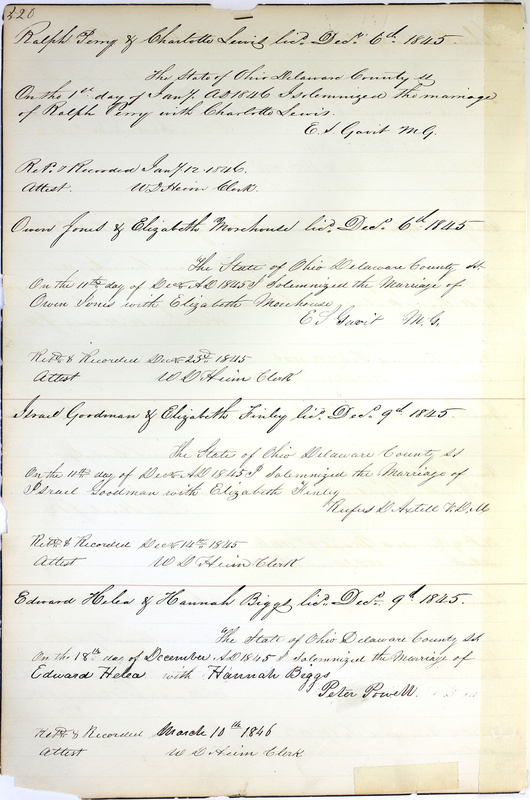 220
Ralph Perry & Charlotte Lewis lic. Decr. 6th. 1845.
The State of Ohio Delaware County ss
On the 1st day of Jany. AD 1846 I solemnized the marriage
of Ralph Perry with Charlotte Lewis.
E. S. Gavit M.G.
Retd. & Recorded Jany. 12. 1846.
Attest. W D Heim Clerk.
Owen Jones & Elizabeth Morehouse lic. Decr. 6th. 1845
The State of Ohio Delaware County ss.
On the 11th day of Decr AD 1845 I solemnized the Marriage of
Owen Jones with Elizabeth Morehouse
E S Gavit M.G.
Retd & Recorded Decr 23rd 1845
Attest W D Heim Clerk
Israel Goodman & Elizabeth Finley lic. Decr. 9th. 1845
The State of Ohio Delaware County ss
On the 11th day of Decr AD 1845 I solemnized the Marriage of
Israel Goodman with Elizabeth Finley
Rufus D Axtell V.D.M
Retd & Recorded Decr 14th 1845
Attest W D Heim Clerk
Edward Helea & Hannah Biggs lic. Decr. 9th. 1845.
The State of Ohio Delaware County ss
On the 18th day of December AD 1845 I solemnized the Marriage of
Edward Helea with Hannah Beggs
Peter Powell.
Retd & Recorded March 10th 1846
Attest W D Heim Clerk